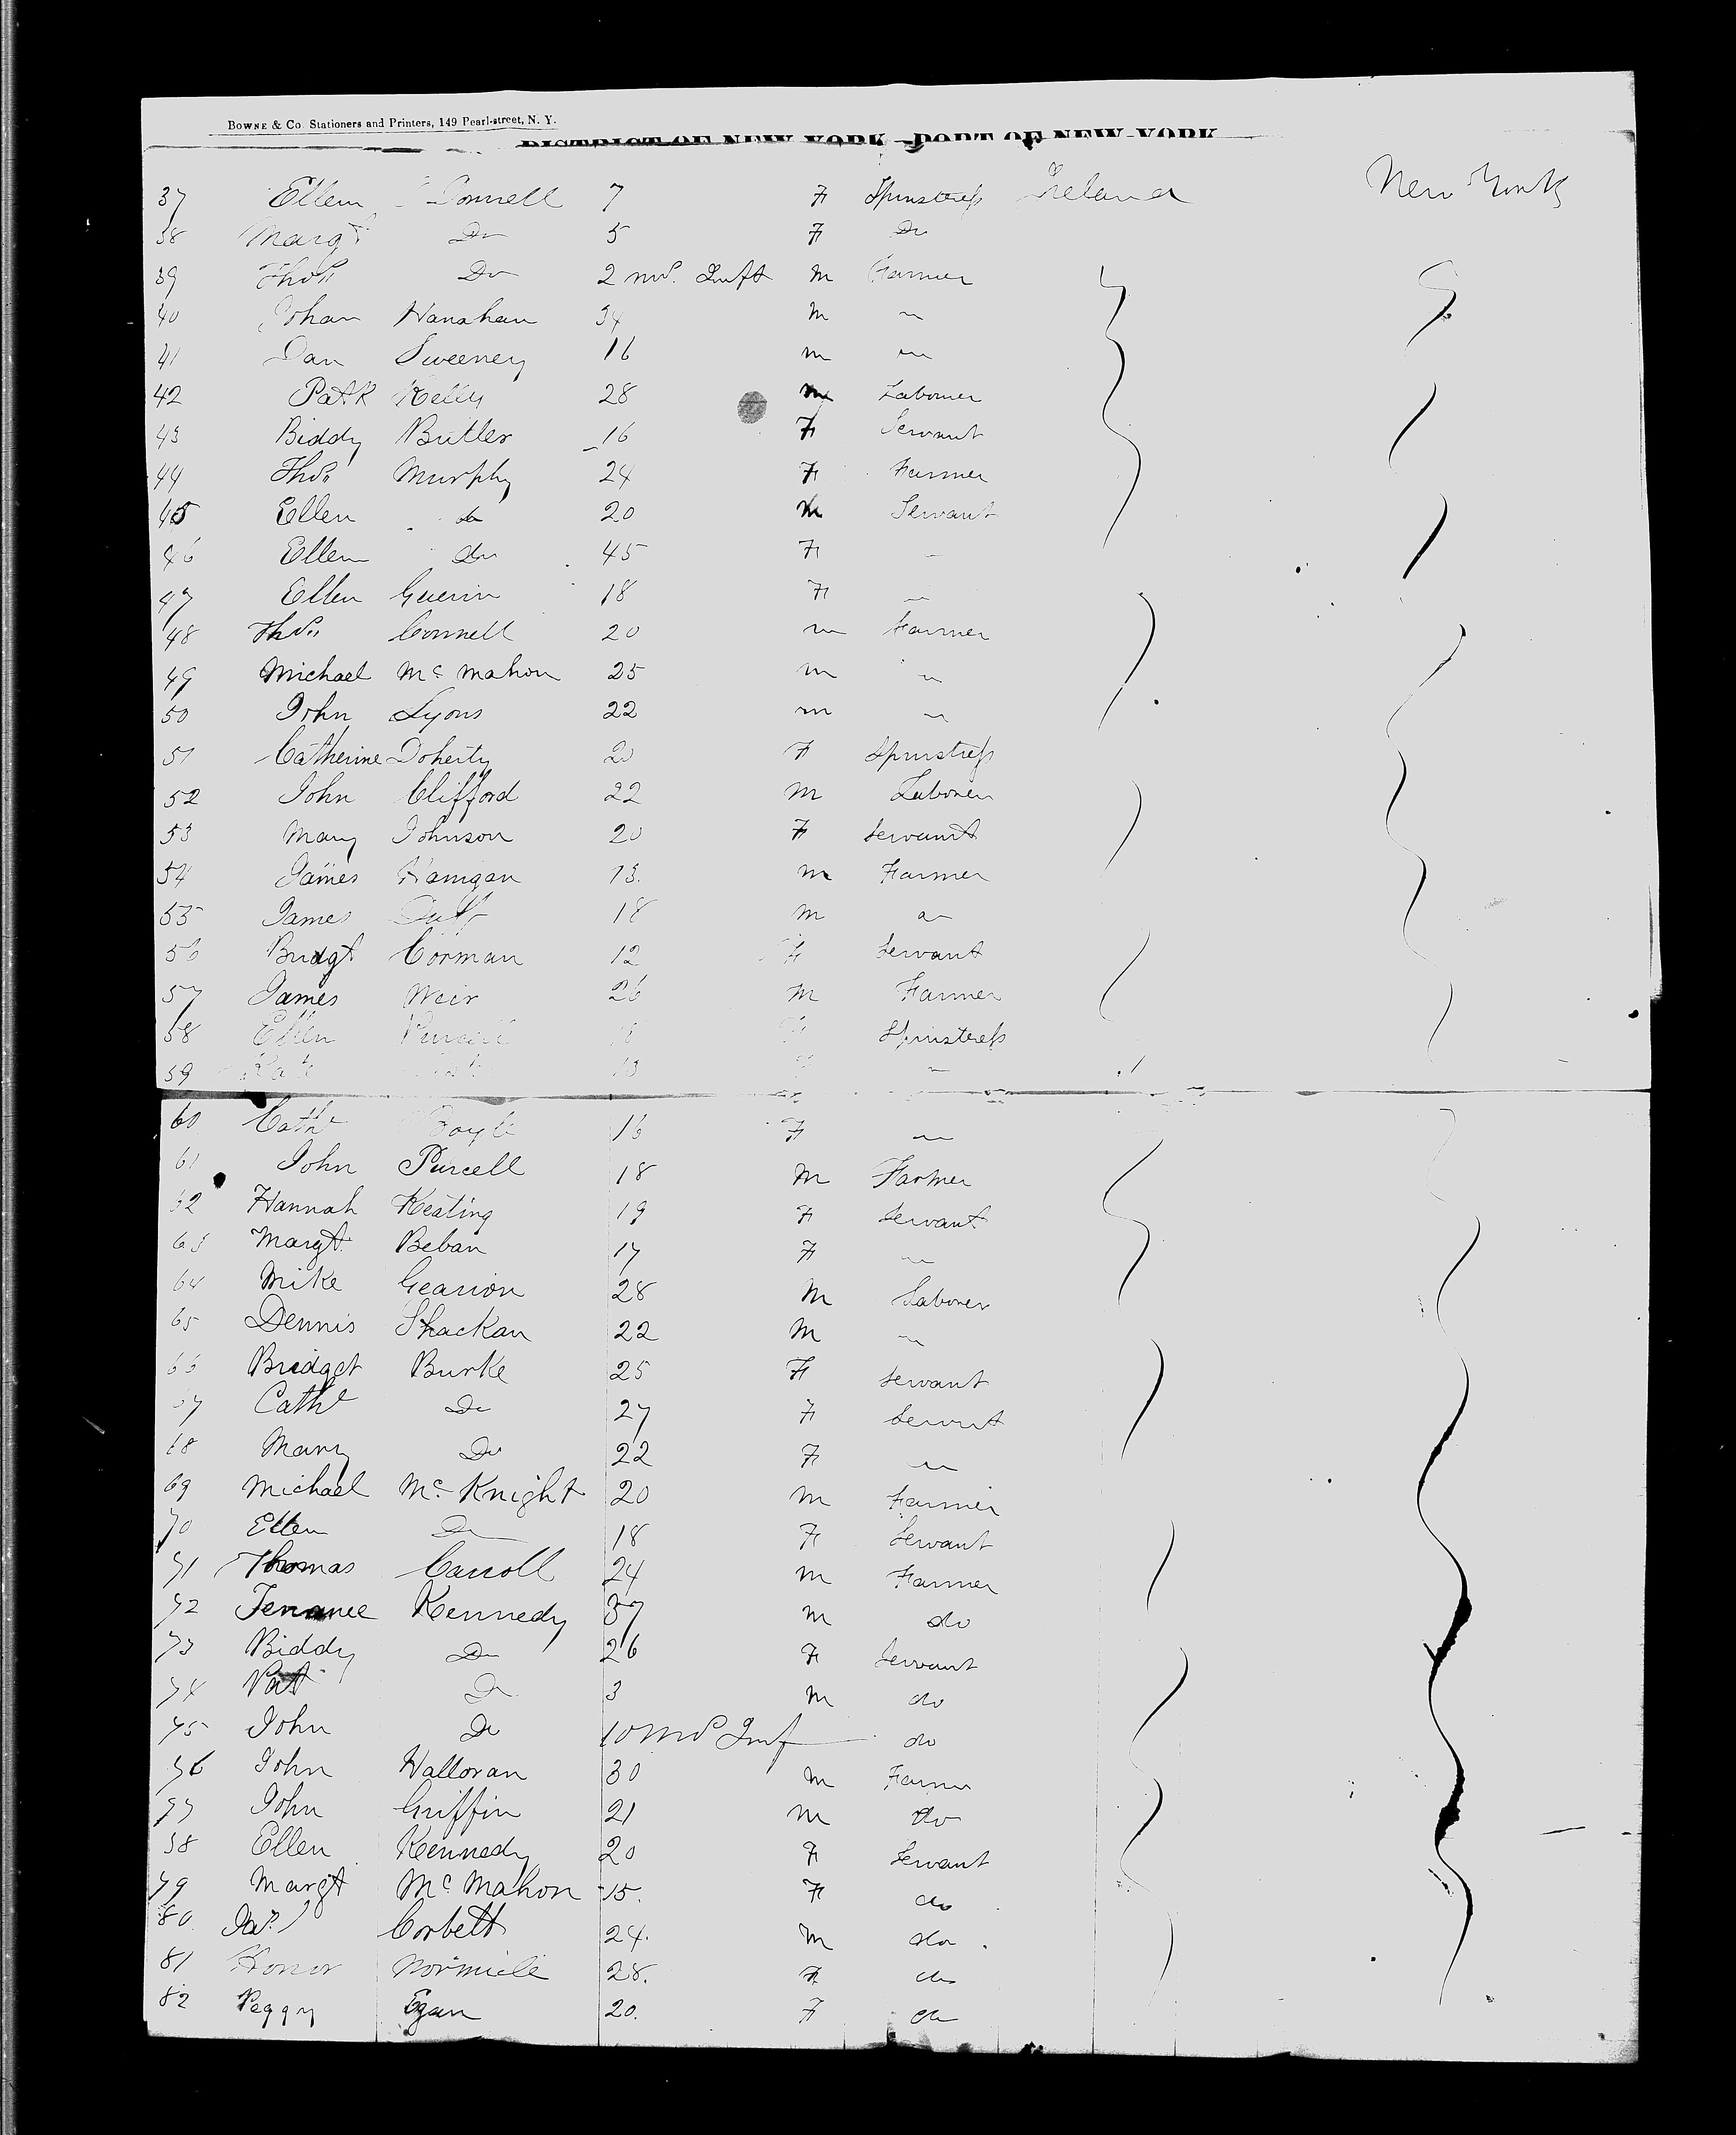 BOWNE & Co. Stationers and Printers, 149 Pearl-street, N. Y.
DISTRICT OF NEW-YORK—PORT OF NEW-YORK
37 Ellen Connell 7 F Spinstress Ireland New York
38 Margt Do 5 F Do
39 Thos Do 2 mos. Inft M Farmer
40 Johan Hanahan 34 M "
41 Dan Sweeney 16 M "
42 Patk Kelly 28 M Labourer
43 Biddy Butler 16 F Servant
44 Thos Murphy 24 F Farmer
45 Ellen do 20 M Servant
46 Ellen do 45 F "
47 Ellen Guerin 18 F "
48 Thos Connell 20 M Farmer
49 Michael Mc Mahon 25 M "
50 John Lyons 22 M "
51 Catherine Doherty 20 F Spinstress
52 John Clifford 22 M Laborer
53 Mary Johnson 20 F Servant
54 James Hanigan 13. M Farmer
55 James 18 M "
56 Bridgt Corman 12 F Servant
57 James Weir 26 M Farmer
58 Ellen Purcell 18 F Spinstress
59 Kate "
60 Cathe Boyle 16 F "
61 John Purcell 18 M Farmer
62 Hannah Keating 19 F Servant
63 Margt Beban 17 F "
64 Mike Gearion 28 M Laborer
65 Dennis Shackan 22 M "
66 Bridget Burke 25 F Servant
67 Cathe Do 27 F Servant
68 Mary Do 22 F "
69 Michael Mc Knight 20 M Farmer
70 Ellen Do 18 F Servant
71 Thomas Carroll 24 M Farmer
72 Kennedy 37 M do
73 Biddy Do 26 F Servant
74 Pat Do 3 M do
75 John Do 10 mos Inf do
76 John Halloran 30 M Farmer
77 John Griffin 21 M do
78 Ellen Kennedy 20 F Servant
79 Margt Mc Mahon 15. F do
80 Jas. Corbett 24. M do
81 Honor Normiele 28. F do
82 Peggy Egan 20. F do